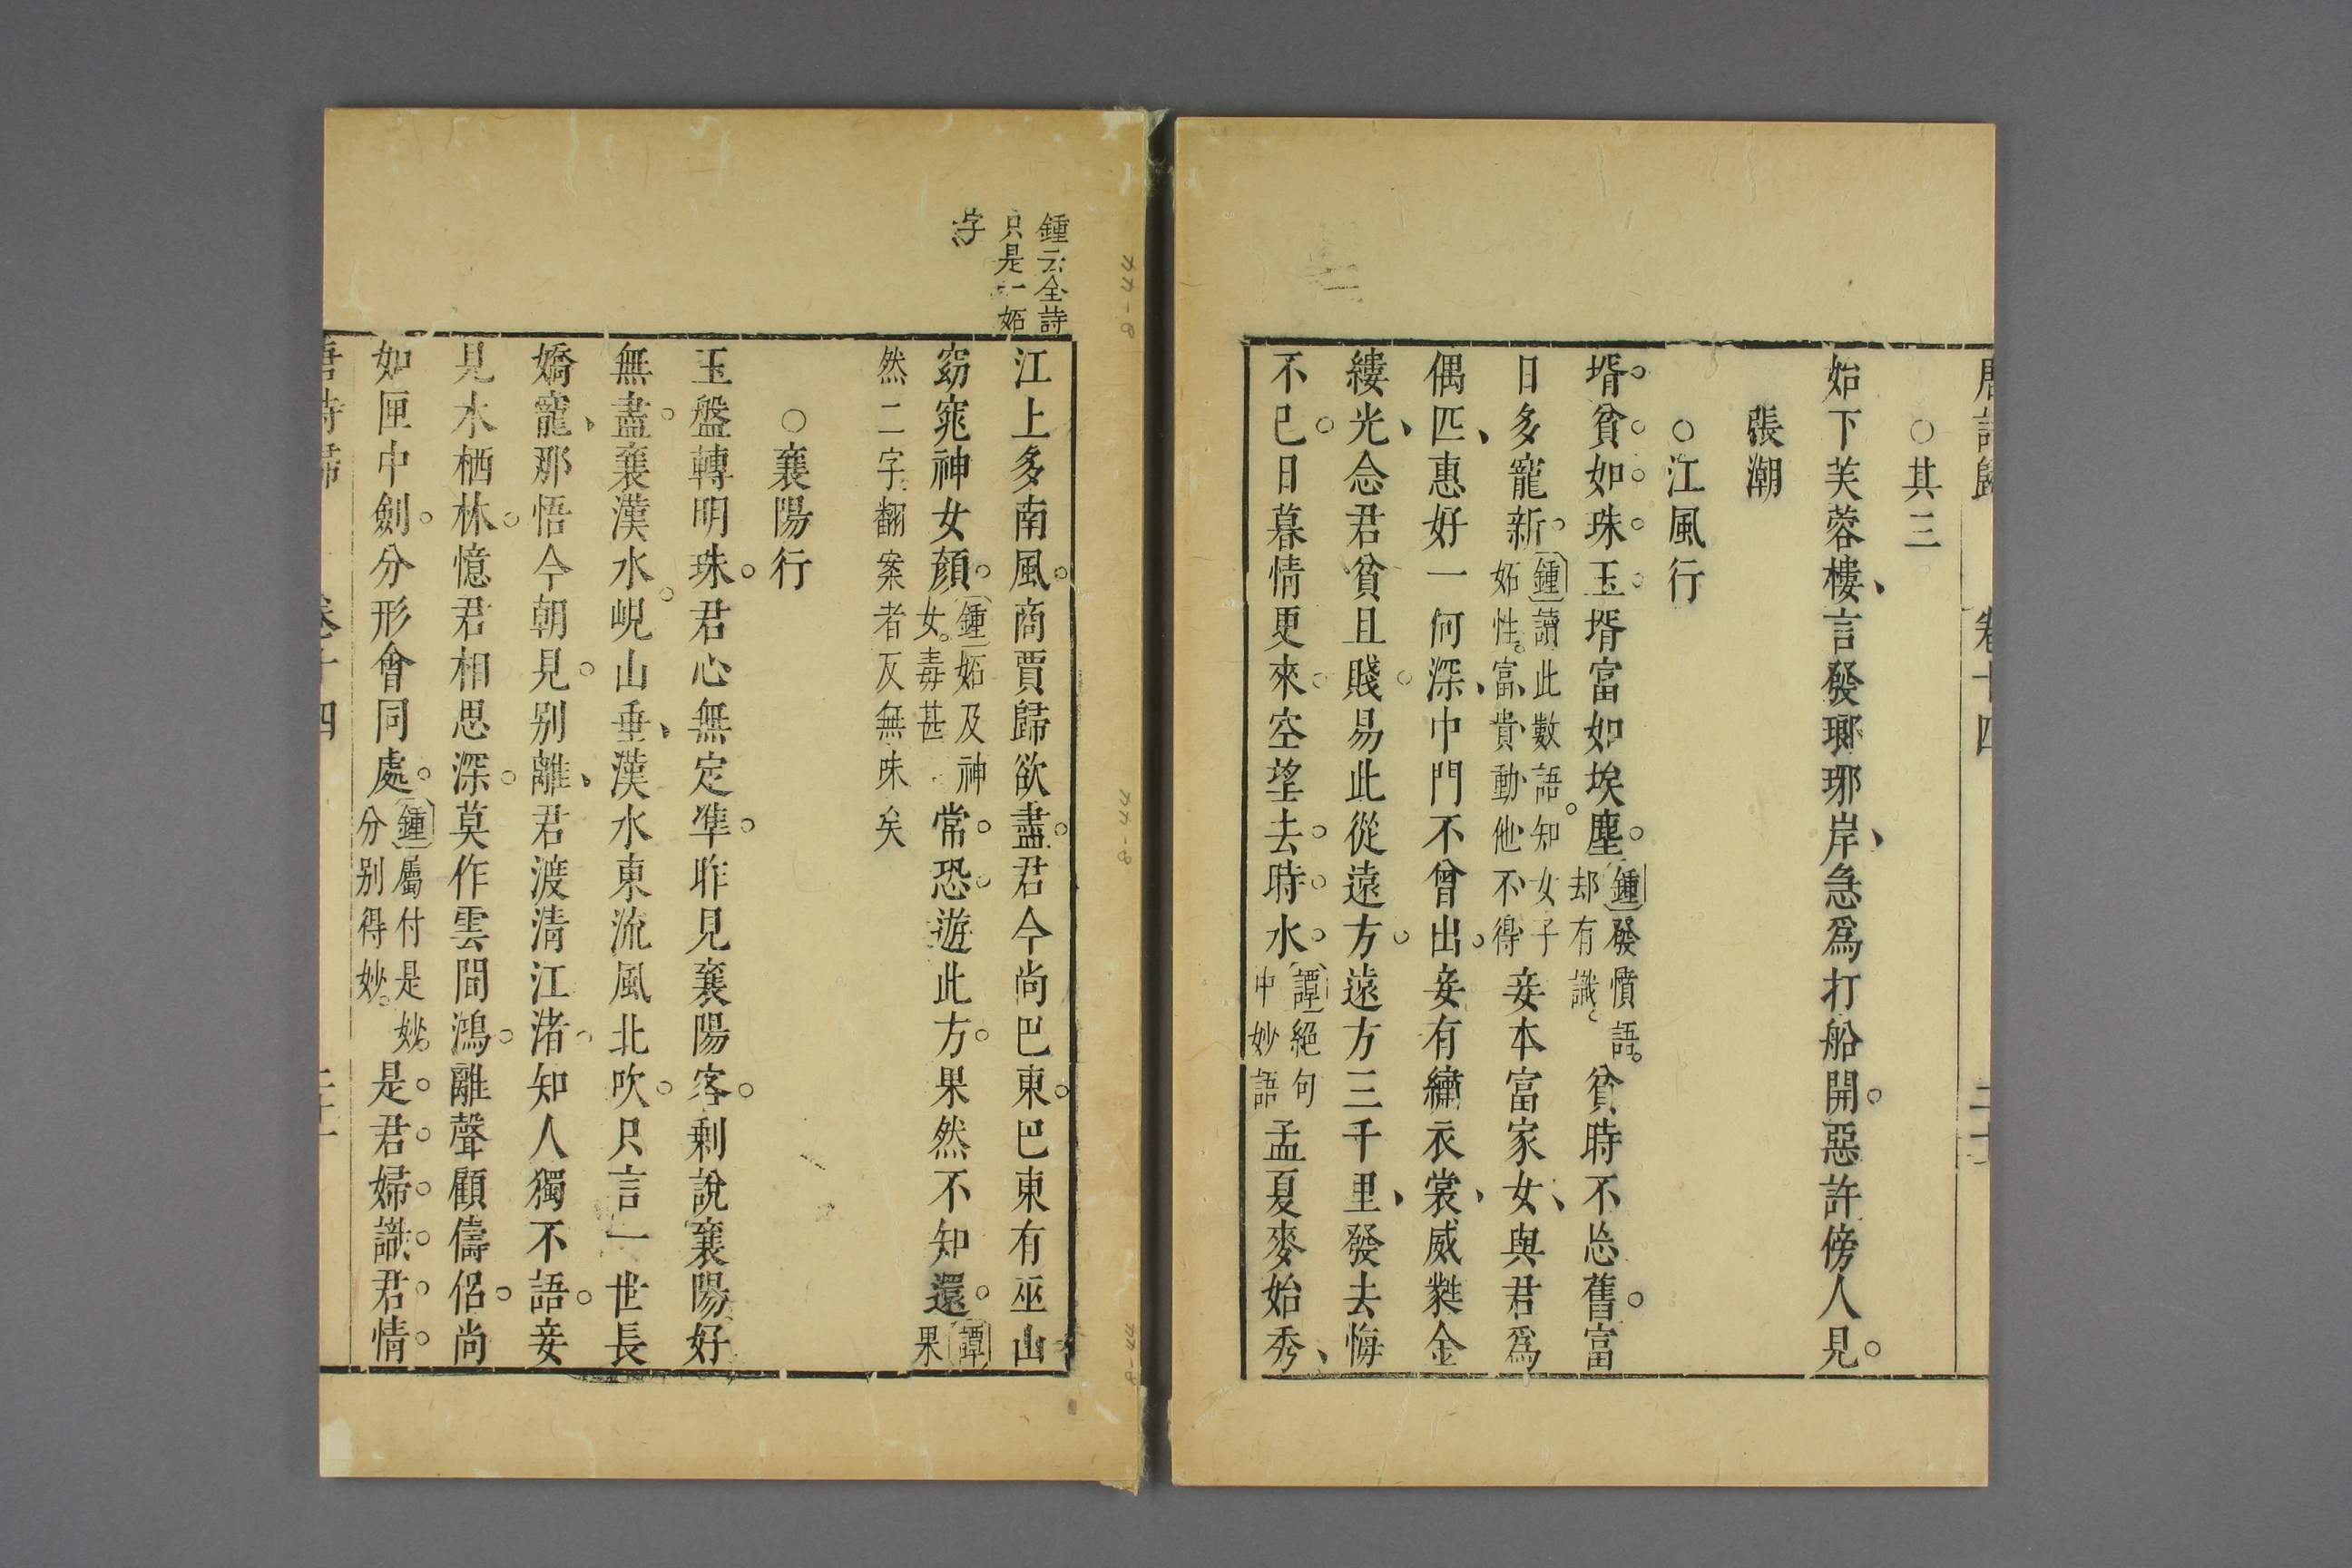 唐詩歸 卷十四 二十
○其三
始下芙蓉樓言發瑯琊岸急爲打船開惡許傍人見
張潮
○江風行
壻貧如珠玉壻富如埃塵鍾發憤語却有識貧時不忘舊富
日多寵新鍾讀此數語知女子妬性富貴動他不得妾本富家女與君爲
偶匹惠好一何深中門不曾出妾有繡衣裳葳蕤金
縷光念君貧且賤易此從遠方遠方三千里發去悔
不已日暮情更來空望去時水譚絕句中妙語孟夏麥始秀
鍾云全詩
只是一妬
字
江上多南風商賈歸欲盡君今尚巴東巴東有巫山
窈窕神女顏鍾妬及神女毒甚常恐遊此方果然不知還譚果
然二字翻案者反無味矣
○襄陽行
玉盤轉明珠君心無定準昨見襄陽客剩說襄陽好
無盡襄漢水峴山垂漢水東流風北吹只言一世長
嬌寵那悟今朝見別離君渡清江渚知人獨不語妾
見水栖林憶君相思深莫作雲間鴻離聲顧儔侶尚
如匣中劍分形會同處鍾屬付是妙分別得妙是君婦識君情
唐詩歸 卷十四